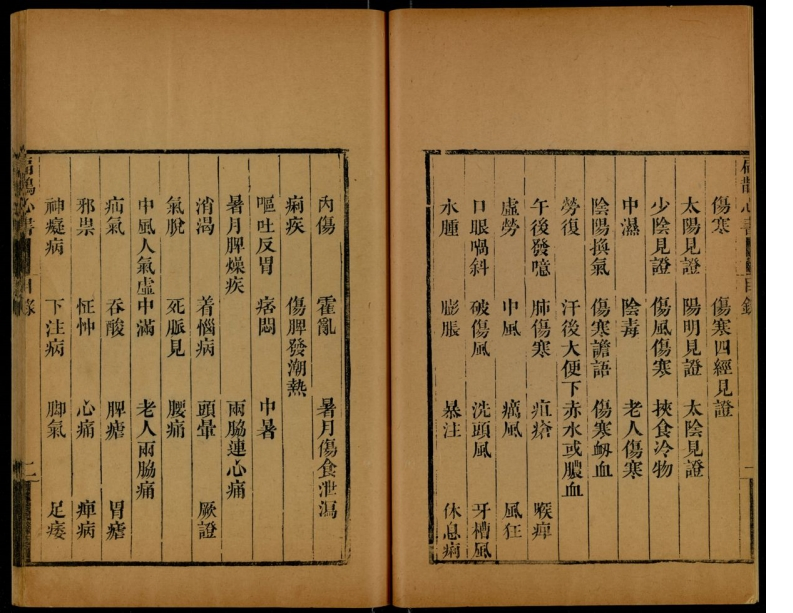 傷寒 傷寒四經見證
太陽見證 陽明見證 太陰見證
少陰見證 傷風傷寒 挾食冷物
中濕 陰毒 老人傷寒
陰陽換氣 傷寒譫語 傷寒衂血
勞復 汗後大便下赤水或膿血
午後發噫 肺傷寒 疽瘡 喉痺
虛勞 中風 癘風 風狂
口眼喎斜 破傷風 洗頭風 牙槽風
水腫 膨脹 暴注 休息痢
內傷 霍亂 暑月傷食泄瀉
痢疾 傷脾發潮熱
嘔吐反胃 痞悶 中暑
暑月脾燥疾 兩脇連心痛
消渴 着惱病 頭暈 厥證
氣脫 死脈見 腰痛
中風人氣虛中滿 老人兩脇痛
疝氣 吞酸 脾瘧 胃瘧
邪祟 怔忡 心痛 痺病
神癡病 下注病 脚氣 足痿
扁鵲心書 目錄 二